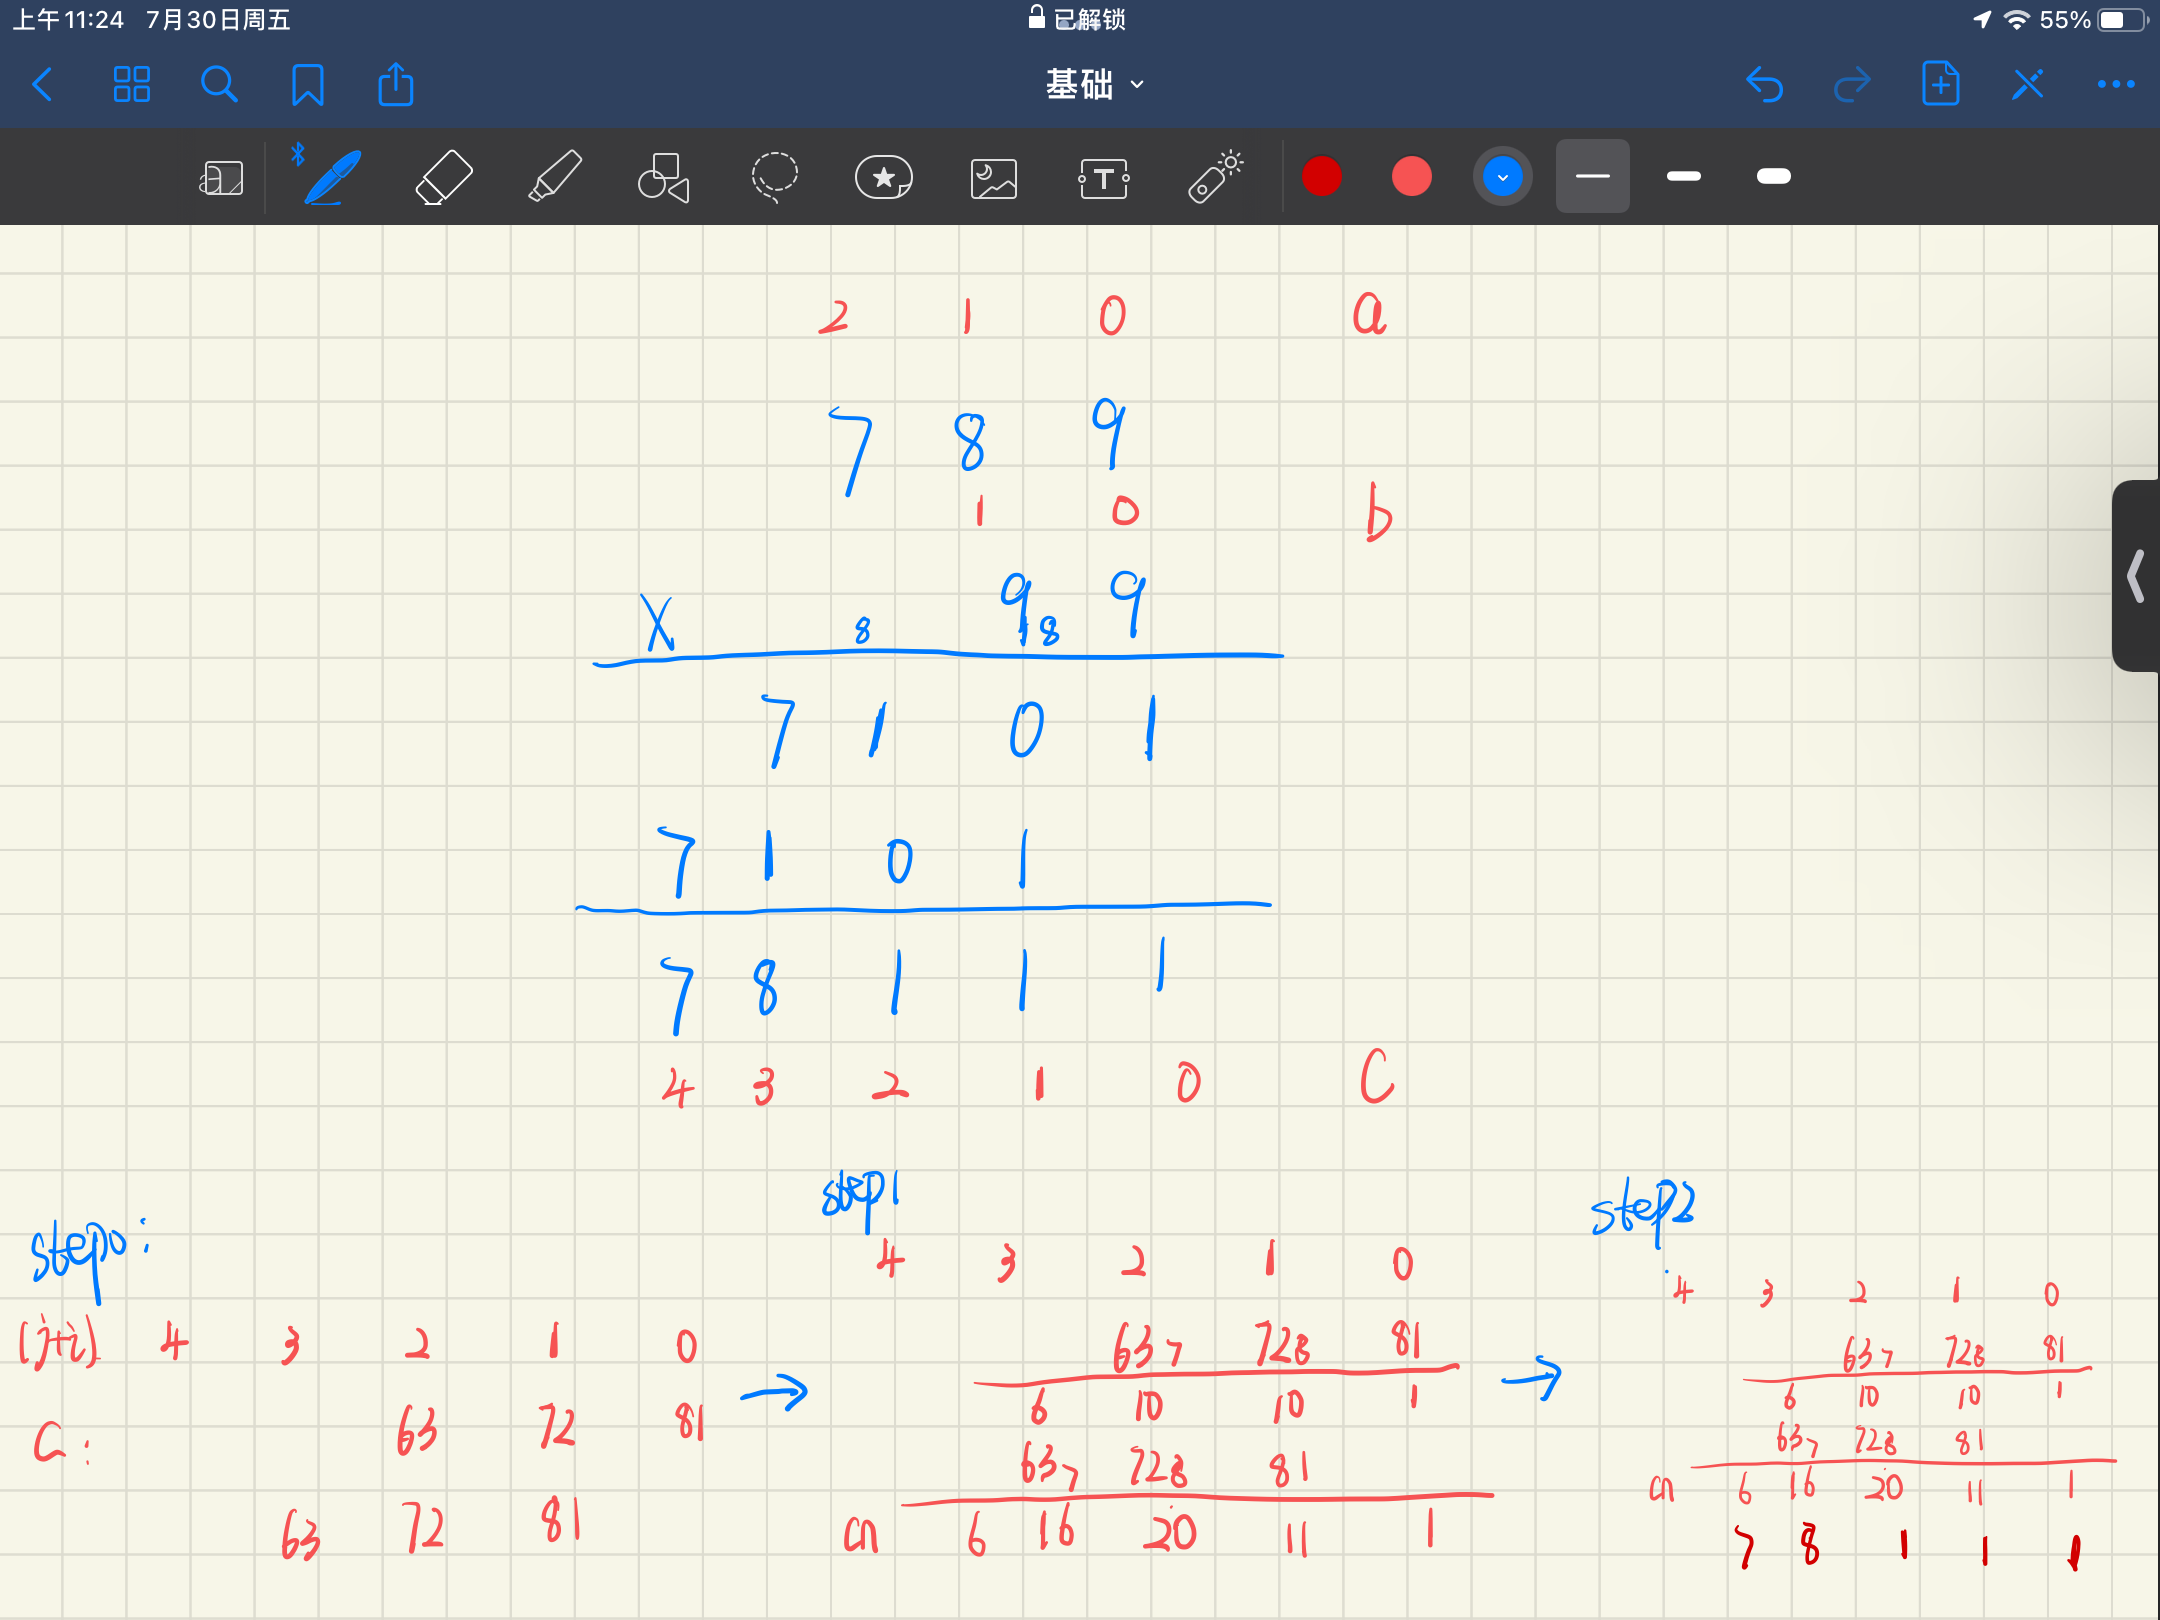 上午11:24 7月30日周五
已解锁
55%
基础
T
2 1 0 a
7 8 9
1 0 b
X 9 9
8 8
7 1 0 1
7 1 0 1
7 8 1 1 1
4 3 2 1 0 C
step0:
(j+i) 4 3 2 1 0
C: 63 72 81
63 72 81
step1
4 3 2 1 0
63 7 72 8 81
6 10 10 1
63 7 72 8 81
cn 6 16 20 11 1
step2
4 3 2 1 0
63 7 72 8 81
6 10 10 1
63 7 72 8 81
cn 6 16 20 11 1
7 8 1 1 1